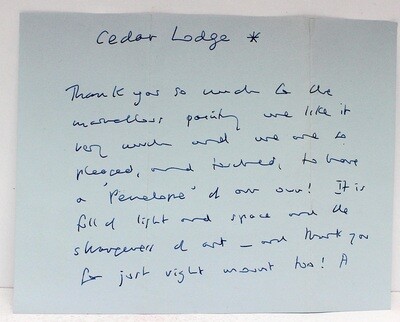 Cedar Lodge *
Thank you so much for the
marvellous painting we like it
very much and we are so
pleased, and touched, to have
a 'Penelope' of our own! It is
full of light and space and the
strangeness of art - and thank you
for just right mount too! A